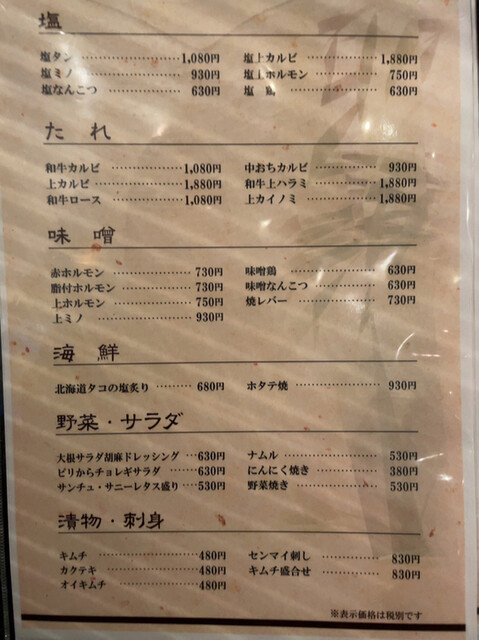 塩
塩タン 1,080円 塩上カルビ 1,880円
塩ミノ 930円 塩上ホルモン 750円
塩なんこつ 630円 塩 鶏 630円
たれ
和牛カルビ 1,080円 中おちカルビ 930円
上カルビ 1,880円 和牛上ハラミ 1,880円
和牛ロース 1,080円 上カイノミ 1,880円
味噌
赤ホルモン 730円 味噌鶏 630円
脂付ホルモン 730円 味噌なんこつ 630円
上ホルモン 750円 焼レバー 730円
上ミノ 930円
海鮮
北海道タコの塩炙り 680円 ホタテ焼 930円
野菜・サラダ
大根サラダ胡麻ドレッシング 630円 ナムル 530円
ピリからチョレギサラダ 630円 にんにく焼き 380円
サンチュ・サニーレタス盛り 530円 野菜焼き 530円
漬物・刺身
キムチ 480円 センマイ刺し 830円
カクテキ 480円 キムチ盛合せ 830円
オイキムチ 480円
※表示価格は税別です